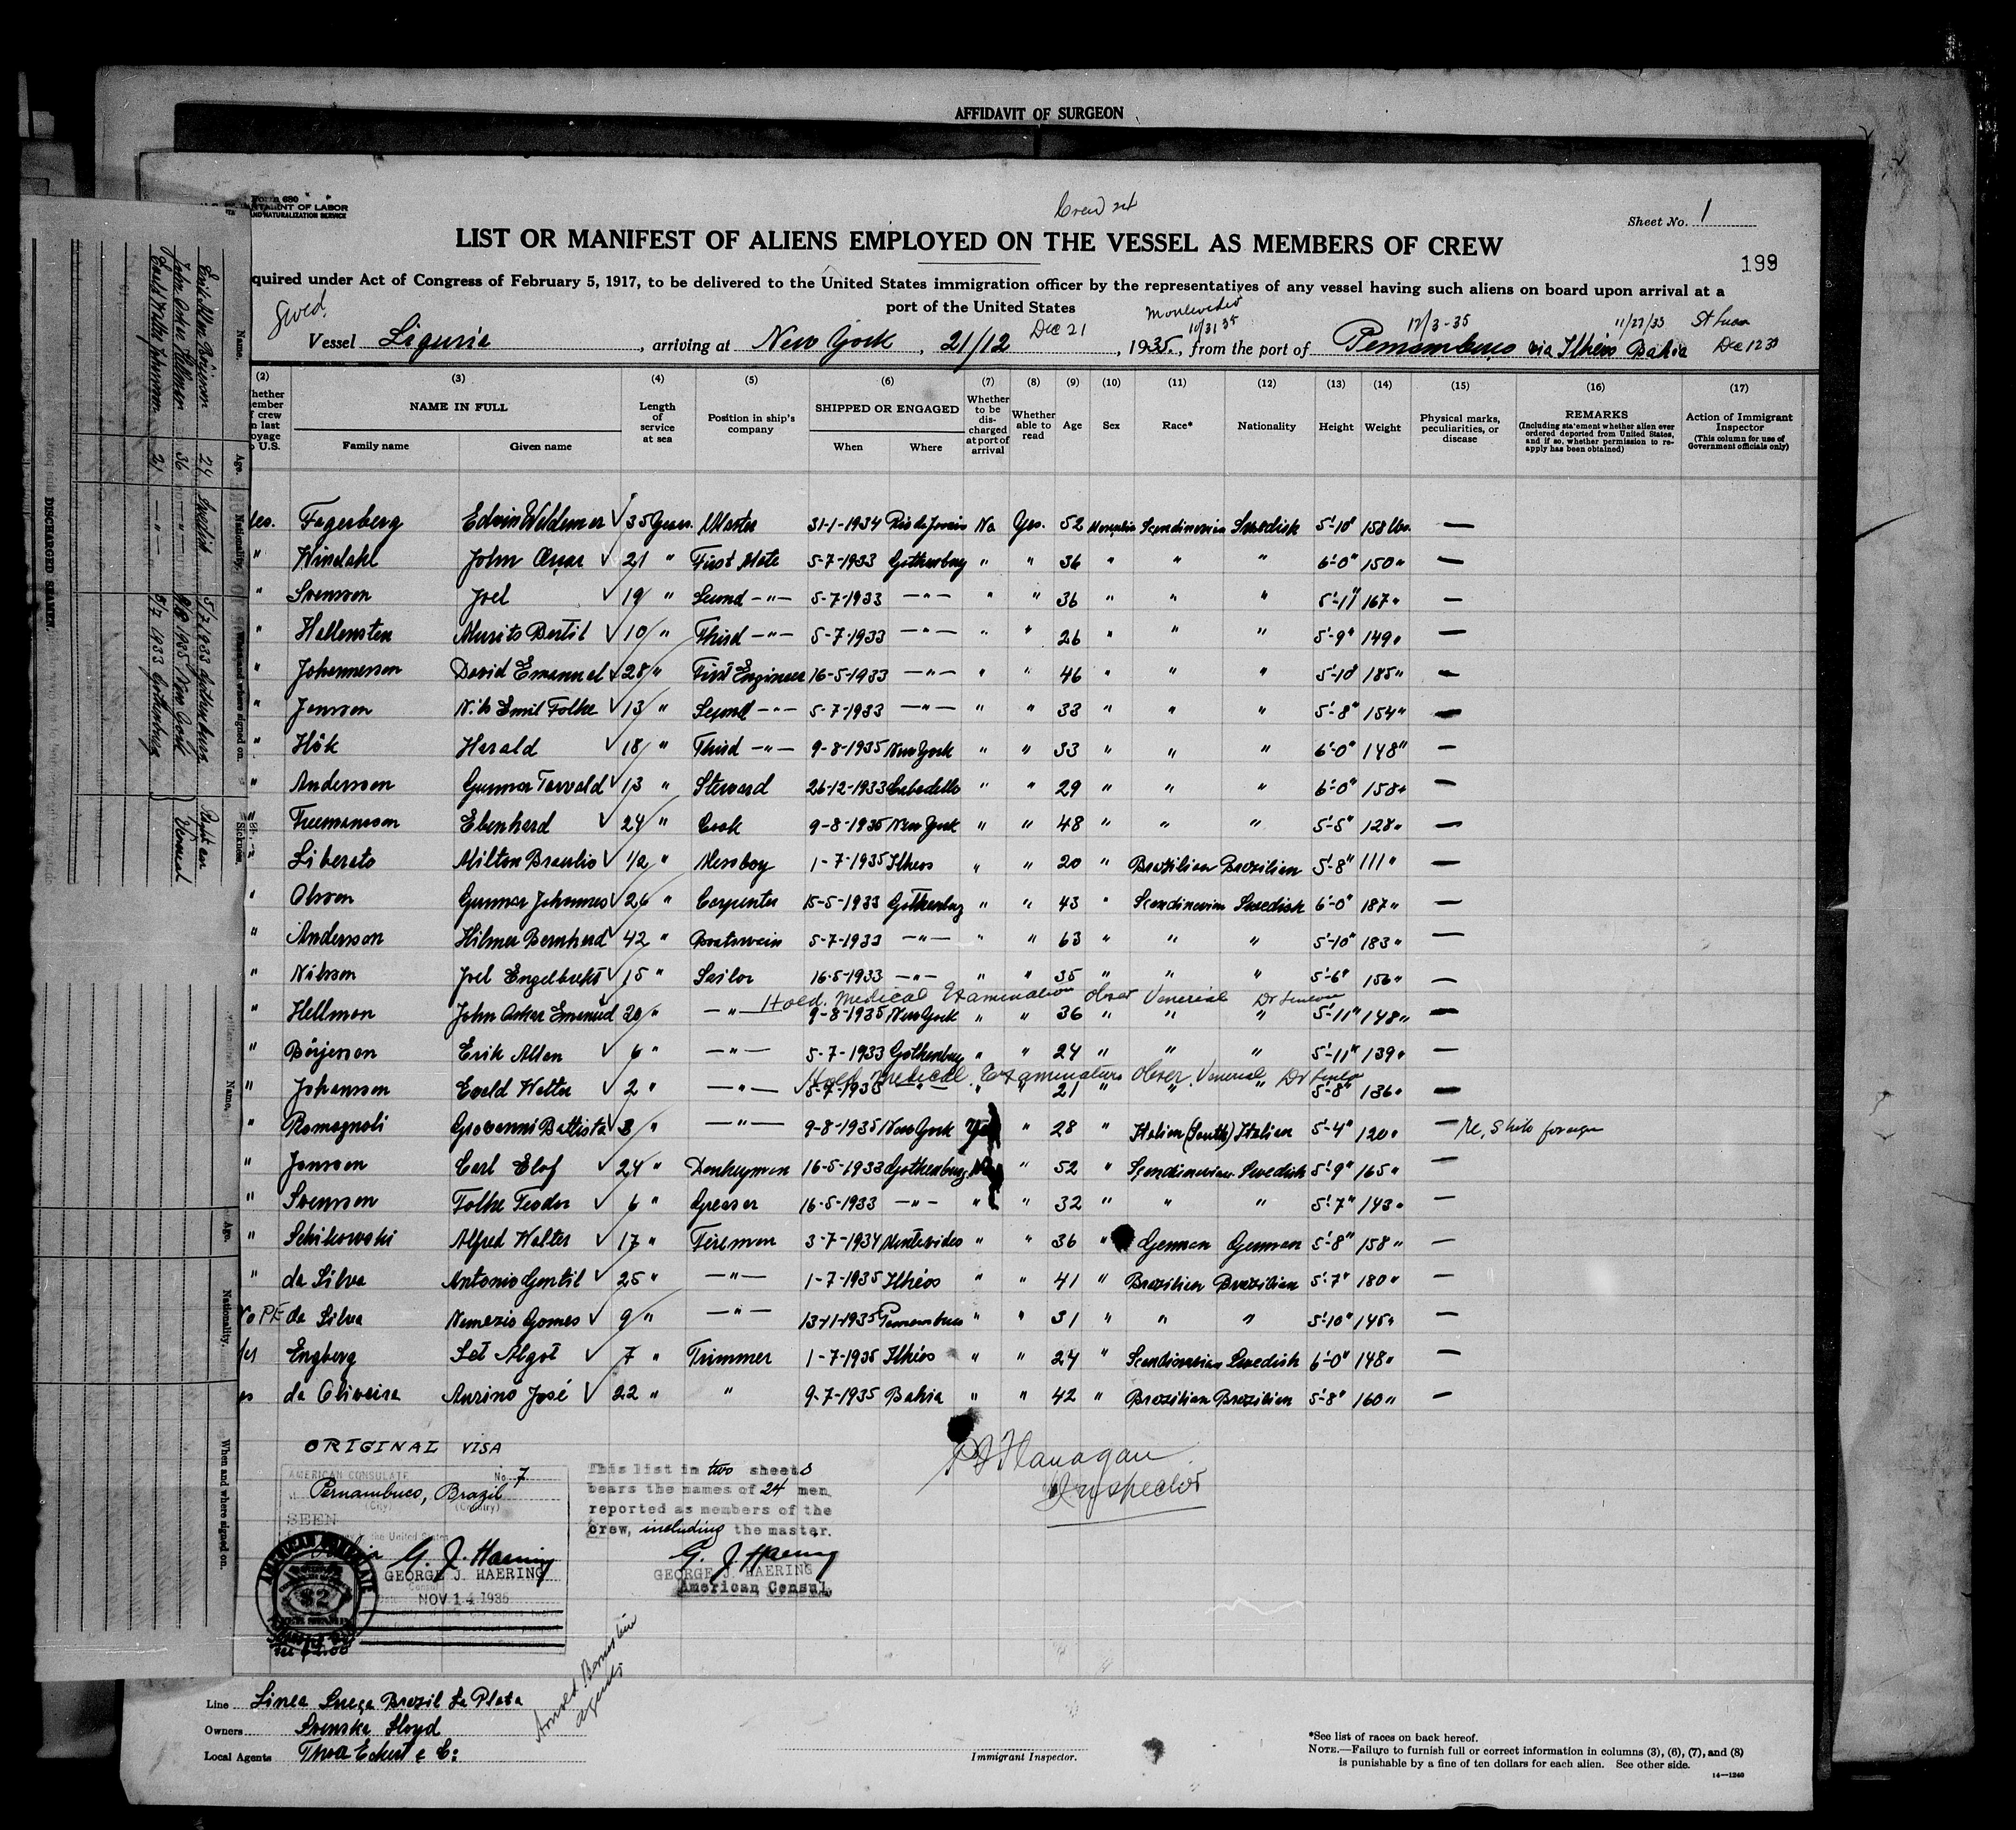 AFFIDAVIT OF SURGEON
Form 680
DEPARTMENT OF LABOR
AND NATURALIZATION SERVICE
Crew
Sheet No. 1
LIST OR MANIFEST OF ALIENS EMPLOYED ON THE VESSEL AS MEMBERS OF CREW
199
quired under Act of Congress of February 5, 1917, to be delivered to the United States immigration officer by the representatives of any vessel having such aliens on board upon arrival at a
port of the United States
Swed.
Montevideo 10/31 35 12/3-35 11/27/35 St Lucia
Vessel Liguria, arriving at New York, 21/12 Dec 21, 1935, from the port of Pernambuco via Ilhéos Bahia Dec 12 35
(2) (3) (4) (5) (6) (7) (8) (9) (10) (11) (12) (13) (14) (15) (16) (17)
NAME IN FULL
Family name Given name
Length of service at sea
Position in ship's company
SHIPPED OR ENGAGED
When Where
Whether to be discharged at port of arrival
Whether able to read
Age Sex Race* Nationality Height Weight
Physical marks, peculiarities, or disease
REMARKS
(Including statement whether alien ever ordered deported from United States, and if so, whether permission to reapply has been obtained)
Action of Immigrant Inspector
(This column for use of Government officials only)
Yes. Fagerberg Edvin Waldemar √ 35 Years. Master 31-1-1934 Rio de Janeiro No Yes. 52 Scandinavia Swedish 5'-10" 158 lbs. —
" Windahl John Oscar √ 21 " First Mate 5-7-1933 Gothenburg " " 36 " " " 6'-0" 150 " —
" Svensson Joel √ 19 " Second —"— 5-7-1933 —"— " " 36 " " " 5'-11" 167 " —
" Hallensten Murits Bertil √ 10 " Third —"— 5-7-1933 —"— " " 26 " " " 5'-9" 149 " —
" Johannesson David Emanuel √ 28 " First Engineer 16-5-1933 —"— " " 46 " " " 5'-10" 185 " —
" Jonsson Nils Emil Folke √ 13 " Second —"— 5-7-1933 —"— " " 33 " " " 5'-8" 154 " —
" Hök Harald √ 18 " Third —"— 9-8-1935 New York " " 33 " " " 6'-0" 148 " —
" Andersson Gunnar Torvald √ 13 " Steward 26-12-1933 Cabedello " " 29 " " " 6'-0" 158 " —
Ebenhard √ 24 " Cook 9-8-1935 New York " " 48 " " " 5'-5" 128 " —
Liberato Milton Braulio √ 1/2 " Messboy 1-7-1935 Ilheos " " 20 " Brazilian Brazilian 5'-8" 111 " —
" Olsson Gunnar Johannes √ 26 " Carpenter 15-5-1933 Gothenburg " " 43 " Scandinavian Swedish 6'-0" 187 " —
" Andersson Hilmer Bernhard √ 42 " Boatswain 5-7-1933 —"— " " 63 " " " 5'-10" 183 " —
" Nilsson Joel Engelbrekt √ 15 " Sailor 16-5-1933 —"— " " 35 " " " 5'-6" 156 " —
Hold. Medical Examination Obser Venerial Dr
" Hellman John Oskar Emanuel 20 " —"— 9-8-1935 New York " " 36 " " " 5'-11" 148 " —
" Börjesson Erik Allan √ 6 " —"— 5-7-1933 Gothenburg " " 24 " " " 5'-11" 139 " —
Hold Medical Examination Obser. Venerial Dr
" Johansson Evald Walter √ 2 " —"— 5-7-1933 —"— " 21 " " 5'-8" 136 " —
" Romagnoli Giovanni Battista √ 3 " —"— 9-8-1935 New York Yes " 28 " Italian (South) Italian 5'-4" 120 " — Re, Ship foreign
" Jonsson Carl Elof √ 24 " Donkeyman 16-5-1933 Gothenburg No " 52 " Scandinavian Swedish 5'-9" 165 " —
" Svensson Folke Teodor √ 6 " Greaser 16-5-1933 —"— " " 32 " " " 5'-7" 143 " —
" Schikowski Alfred Walter √ 17 " Fireman 3-7-1934 Montevideo " " 36 " German German 5'-8" 158 " —
" da Silva Antonio Gentil √ 25 " —"— 1-7-1935 Ilhéos " " 41 " Brazilian Brazilian 5'-7" 180 " —
No PE da Silva Nemezio Gomes √ 9 " —"— 13-11-1935 Pernambuco " " 31 " " " 5'-10" 145 " —
Yes Engberg Set Algot √ 7 " Trimmer 1-7-1935 Ilhéos " " 24 " Scandinavian Swedish 6'-0" 148 " —
da Oliveira Aurino José √ 22 " " 9-7-1935 Bahia " " 42 " Brazilian Brazilian 5'-8" 160 " —
ORIGINAL VISA
AMERICAN CONSULATE No 7
Pernambuco, Brazil
(City) (Country)
SEEN
the United States
G. J. Haering
GEORGE J. HAERING
Consul
NOV 14 1935
AMERICAN CONSULATE
This list in two sheets
bears the names of 24 men,
reported as members of the
crew, including the master.
G. J. Haering
GEORGE J. HAERING
American Consul
Flanagan
Inspector
Line Linea Sueca Brazil La Plata
Owners Svenska Lloyd
Local Agents Thor Eckert & Co:
Agents
Immigrant Inspector.
*See list of races on back hereof.
NOTE.—Failure to furnish full or correct information in columns (3), (6), (7), and (8)
is punishable by a fine of ten dollars for each alien. See other side.
14—1240
Name. Age. Nationality. When and where signed on. Sickness.
Erik Allan Börjesson 24 Swedish 5/7 1933 Gothenburg
John Oskar Hellman 36 —"— 9/8 1935 New York
Evald Walter Johansson 21 —"— 5/7 1933 Gothenburg
Venereal
DISCHARGED SEAMEN.
Name. Age. Nationality. When and where signed on.